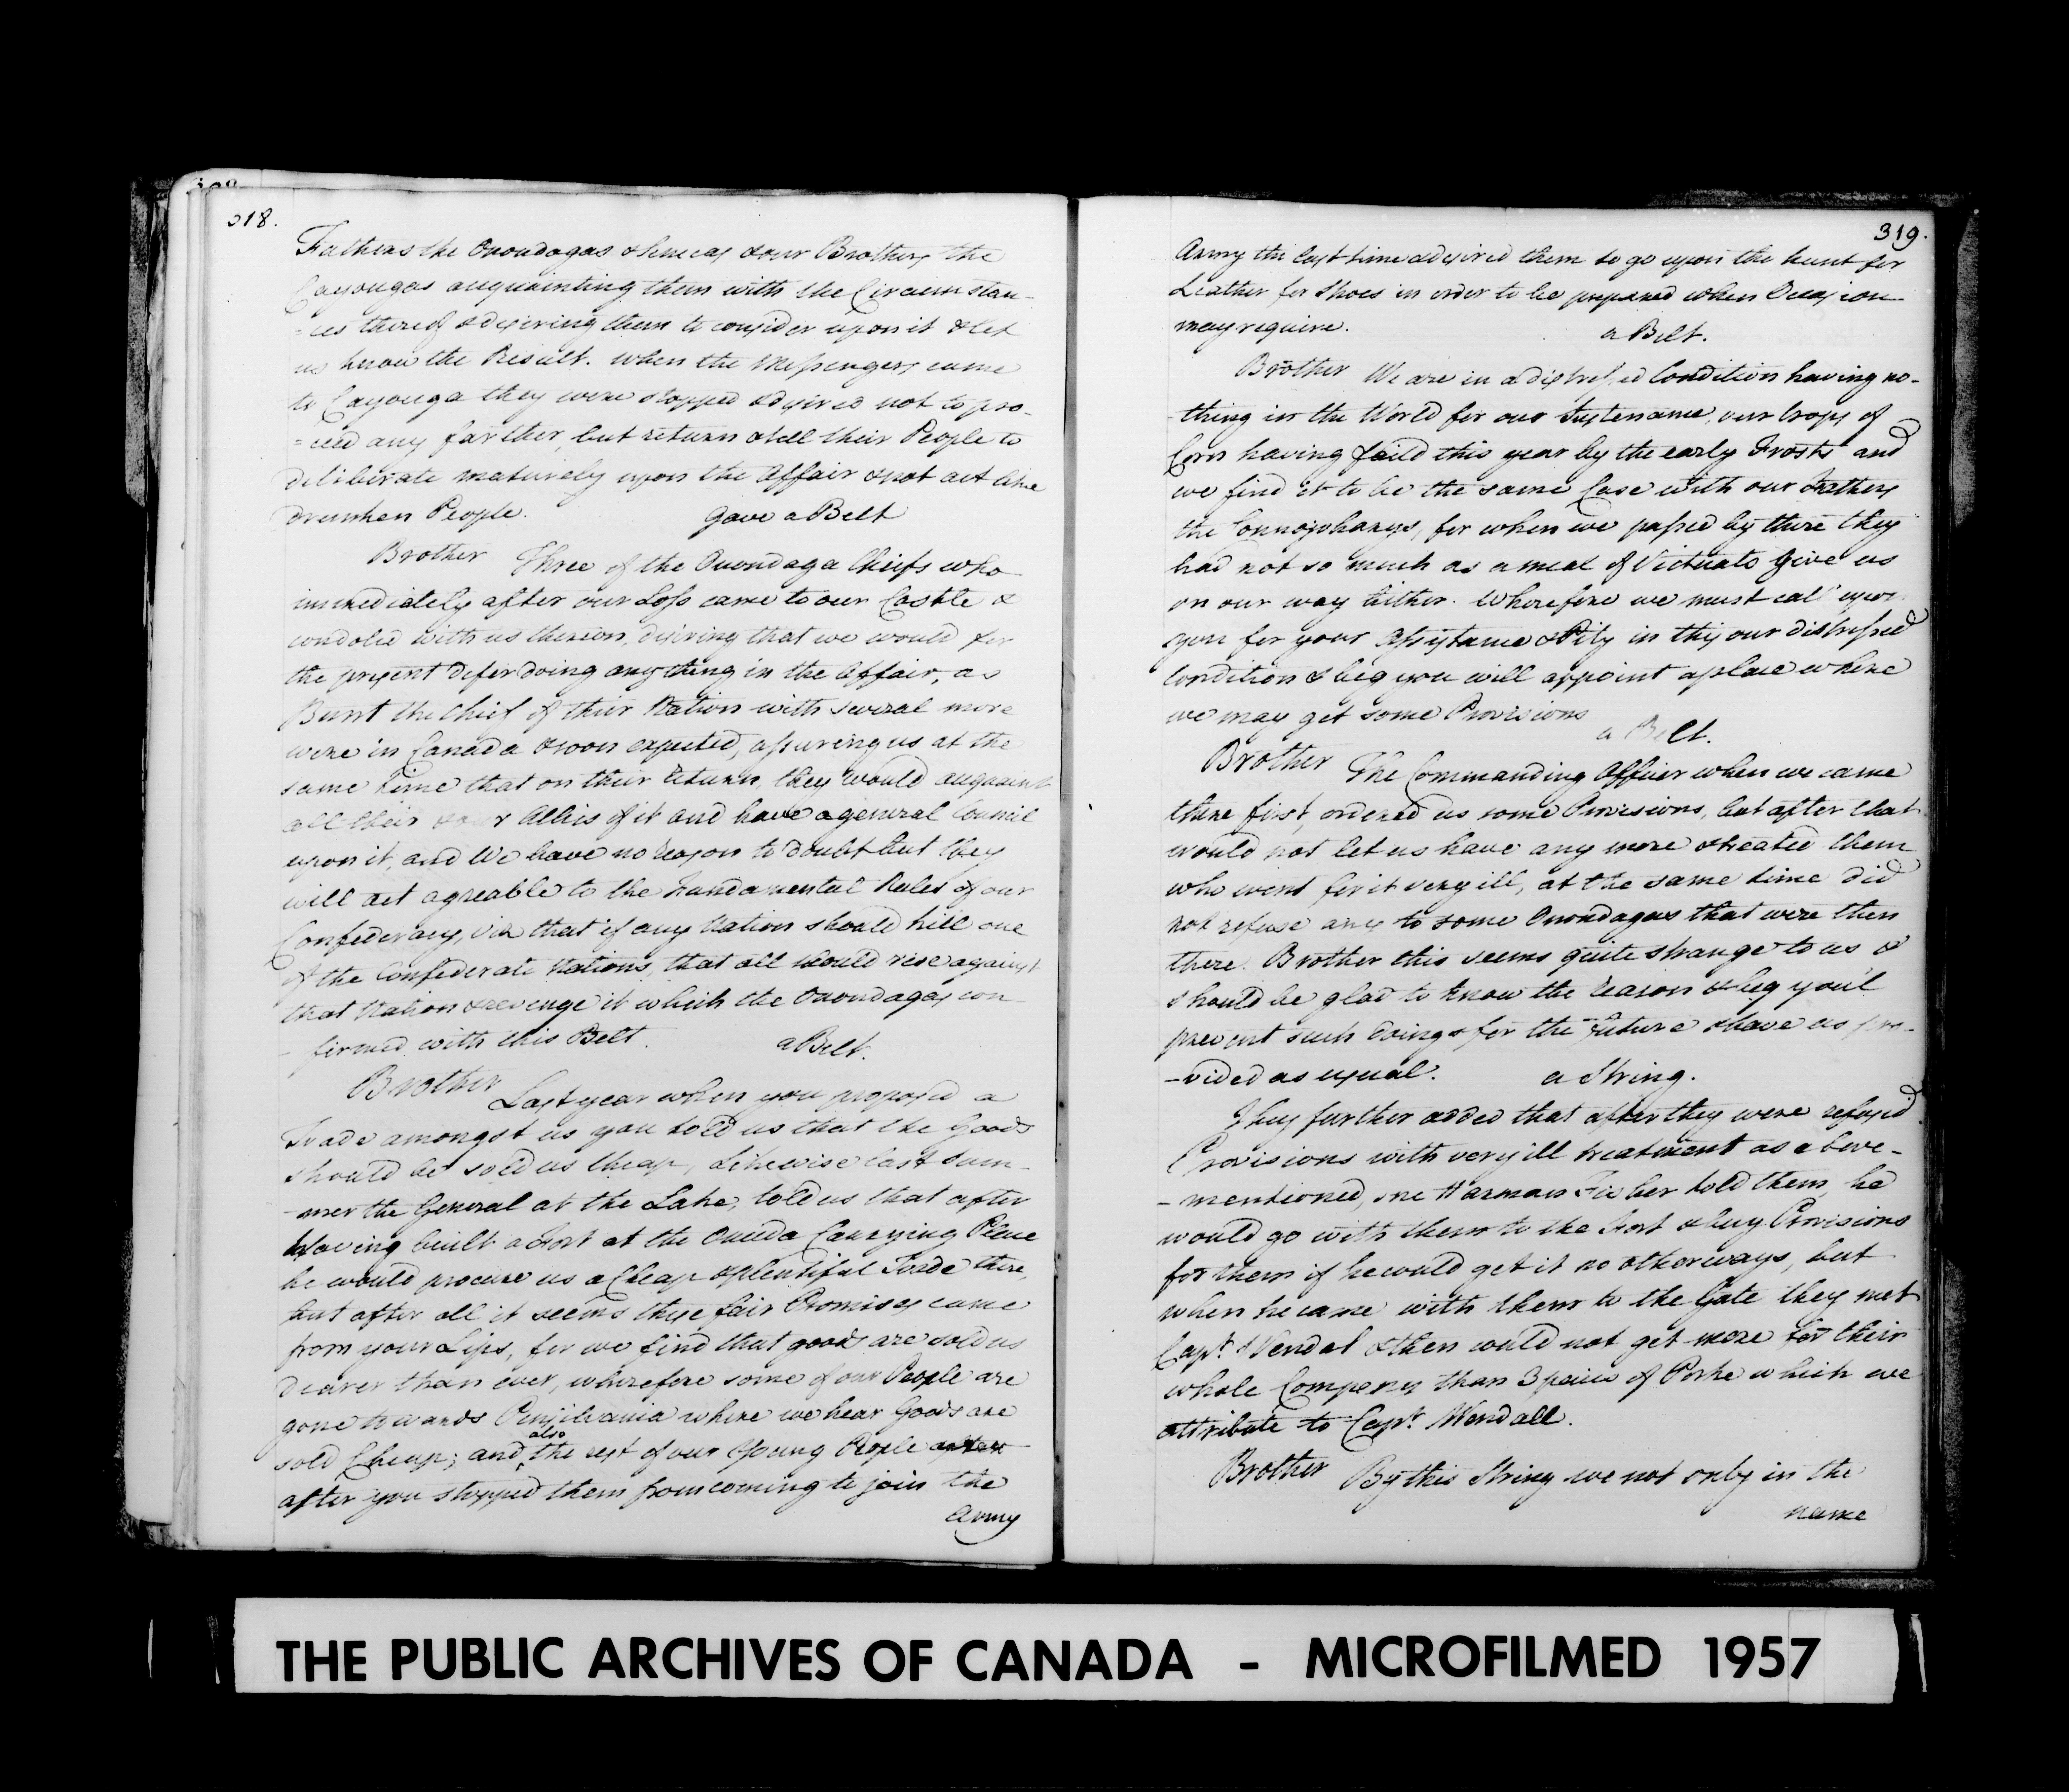 318.
Fathers the Onondagas & Senecas & our Brothers the
Cayougas acquainting them with the Circumstan-
=ces thereof & desiring them to consider upon it & let
us know the Result. when the Messengers came
to Cayouga they were stopped & desired not to pro-
=ceed any farther, but return & tell their People to
deliberate maturely upon the Affair & not act like
drunken People. Gave a Belt
Brother Three of the Onondaga Cheifs who
immediately after our Loss came to our Castle &
condoled with us thereon, desiring that we would for
the present defer doing any thing in the Affair, as
Bunt the Chief of their Nation with several more
were in Canada & soon expected, assuring us at the
same time that on their return, they would acquaint
all their & our Allies of it and have a general Council
upon it, and We have no reason to doubt but they
will act agreable to the Fundamental Rules of our
Confederacy, viz that if any Nation should kill one
of the Confederate Nations, that all should rise against
that Nation & revenge it which the Onondagas con-
- firmed with this Belt. a Belt.
Brother Last year when you proposed a
Trade amongst us you told us that the Goods
should be sold us cheap, Likewise last Sum-
-mer the General at the Lake, told us that after
having built a Fort at the Oneida Carrying Place
he would procure us a Cheap & plentiful Trade there,
but after all it seems these fair Promises came
from your Lips, for we find that goods are sold us
dearer than ever, wherefore some of our People are
gone towards Pensilvania where we hear Goods are
also
sold Cheap; and the rest of our Young People
after you stopped them from coming to join the
Army
319.
Army the last time & desired them to go upon the hunt for
Leather for Shoes in order to be prepared when Occasion
may require. a Belt.
Brother We are in a distressed Condition having no-
-thing in the World for our Sustenance, our Crops of
Corn having faild this year by the early Frosts and
we find it to be the same Case with our Fathers
the Connojoharys, for when we passed by there they
had not so much as a meal of Victuals to give us
on our way hither. Wherefore we must call upon
you for your Assistance & Pity in this our distressed
Condition & beg you will appoint a place where
we may get some Provisions
a Belt.
Brother The Commanding Officer when we came
there first, ordered us some Provisions, but after that
would not let us have any more & treated them
who went for it very ill, at the same time did
not refuse any to some Onondagas that were then
there. Brother this seems quite strange to us &
should be glad to know the reason & beg you'l
prevent such doings for the future & have us pro-
-vided as usual. a String.
They further added that after they were refused
Provisions with very ill treatment as above-
-mentioned, one Harman told them, he
would go with them to the Fort & buy Provisions
for them if he could get it no otherways, but
when he came with them to the Gate they met
Capt. Wendal & then could not get more for their
whole Company than 3 peices of Porke which we
attribute to Capt. Wendall.
Brother By this String we not only in the
name
THE PUBLIC ARCHIVES OF CANADA - MICROFILMED 1957